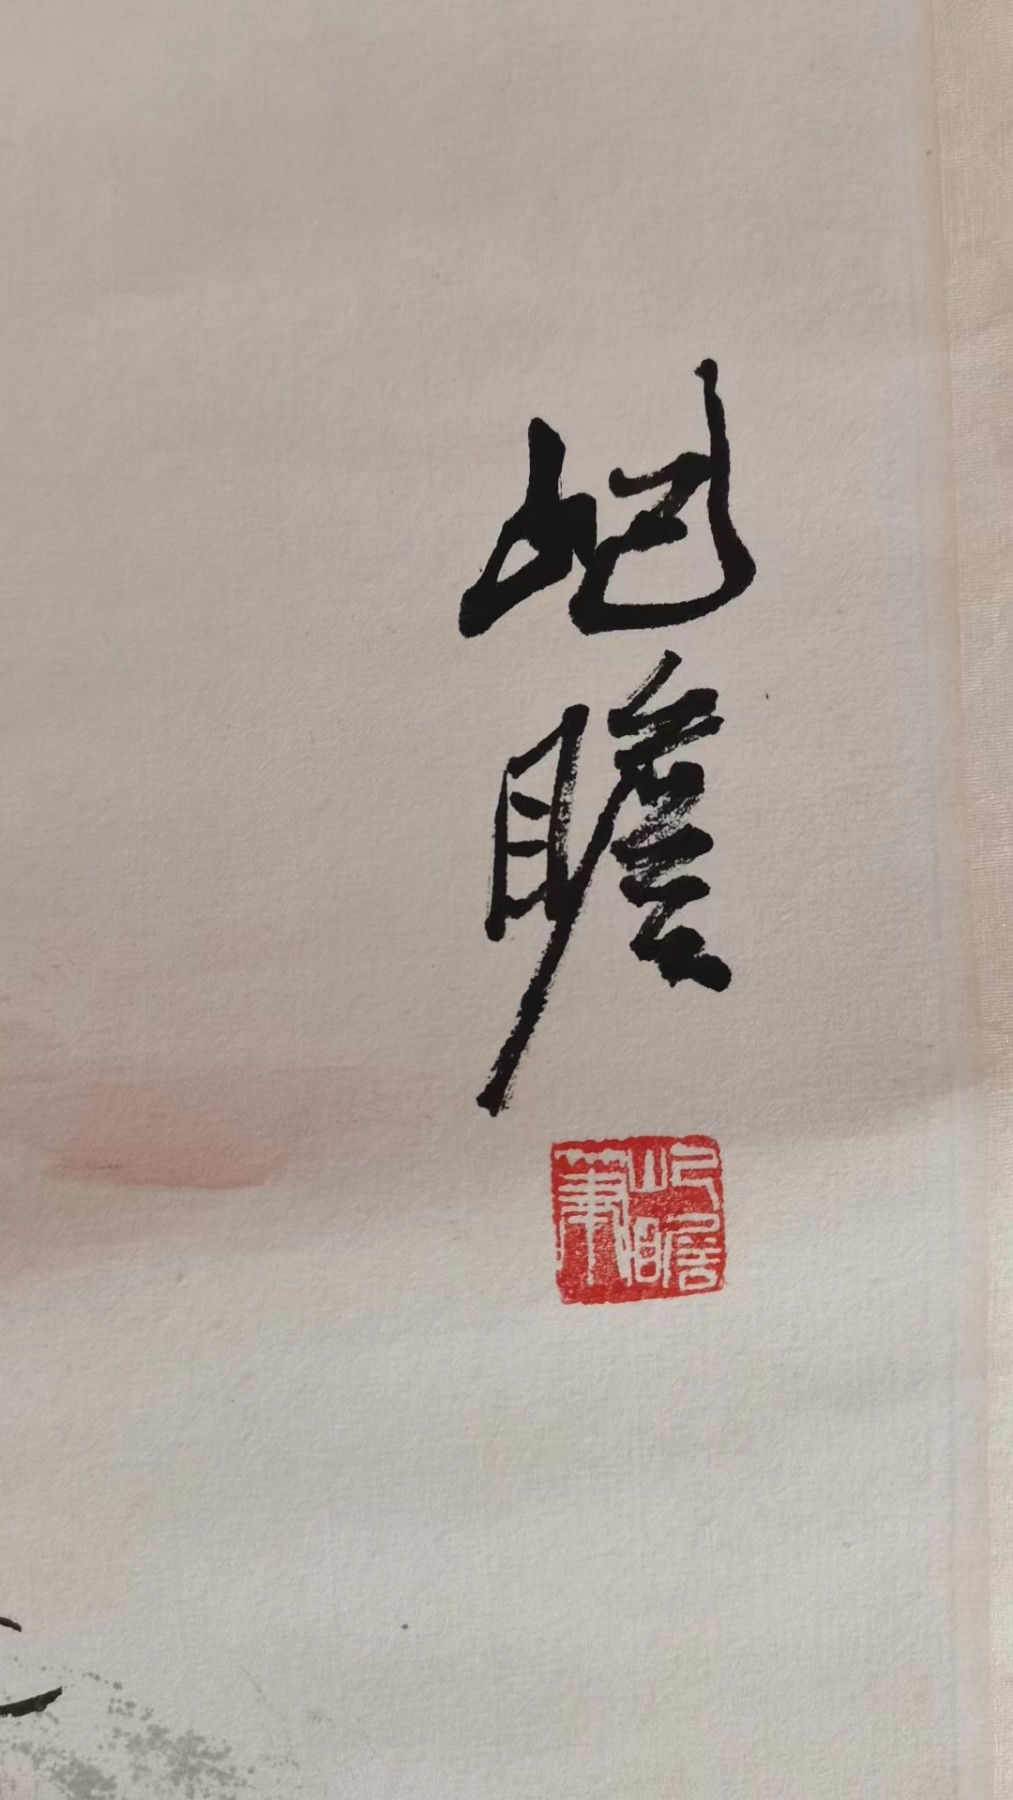 屺瞻
屺瞻筆